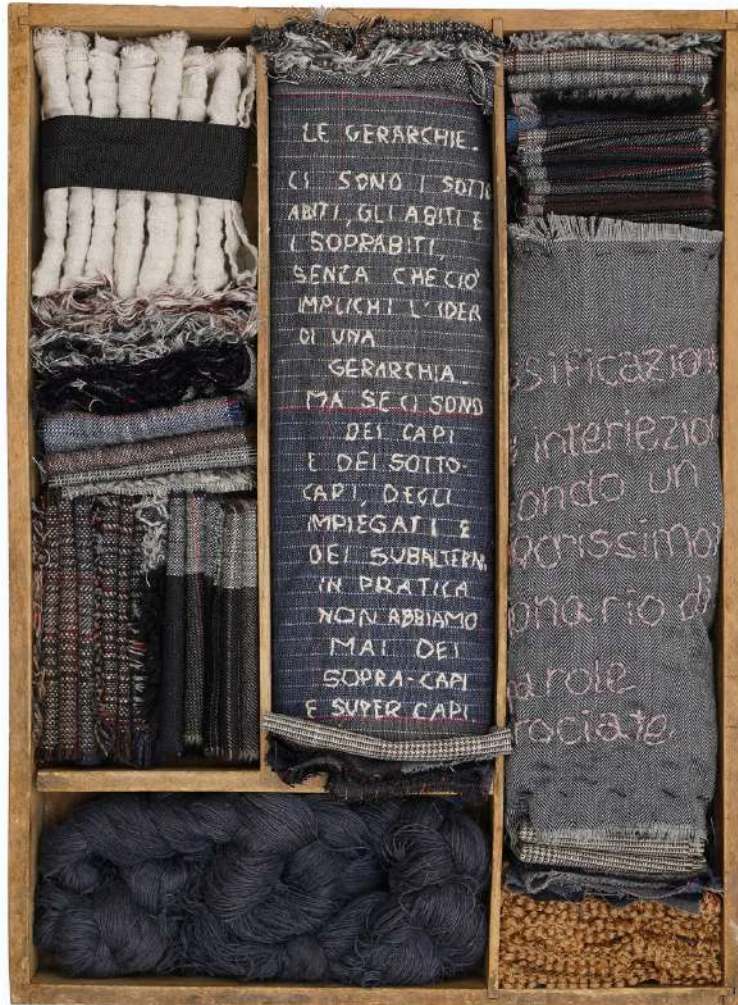 LE GERARCHIE.
CI SONO I SOTTO
ABITI, GLI ABITI E
I SOPRABITI,
SENZA CHE CIÒ
IMPLICHI L'IDEA
DI UNA
GERARCHIA.
MA SE CI SONO
DEI CAPI
E DEI SOTTO-
CAPI, DEGLI
IMPIEGATI E
DEI SUBALTERNI
IN PRATICA
NON ABBIAMO
MAI DEI
SOPRA-CAPI
E SUPER CAPI.
ssificazion
interiezio
ondo un
crissimo
onario di
arole
rociate.